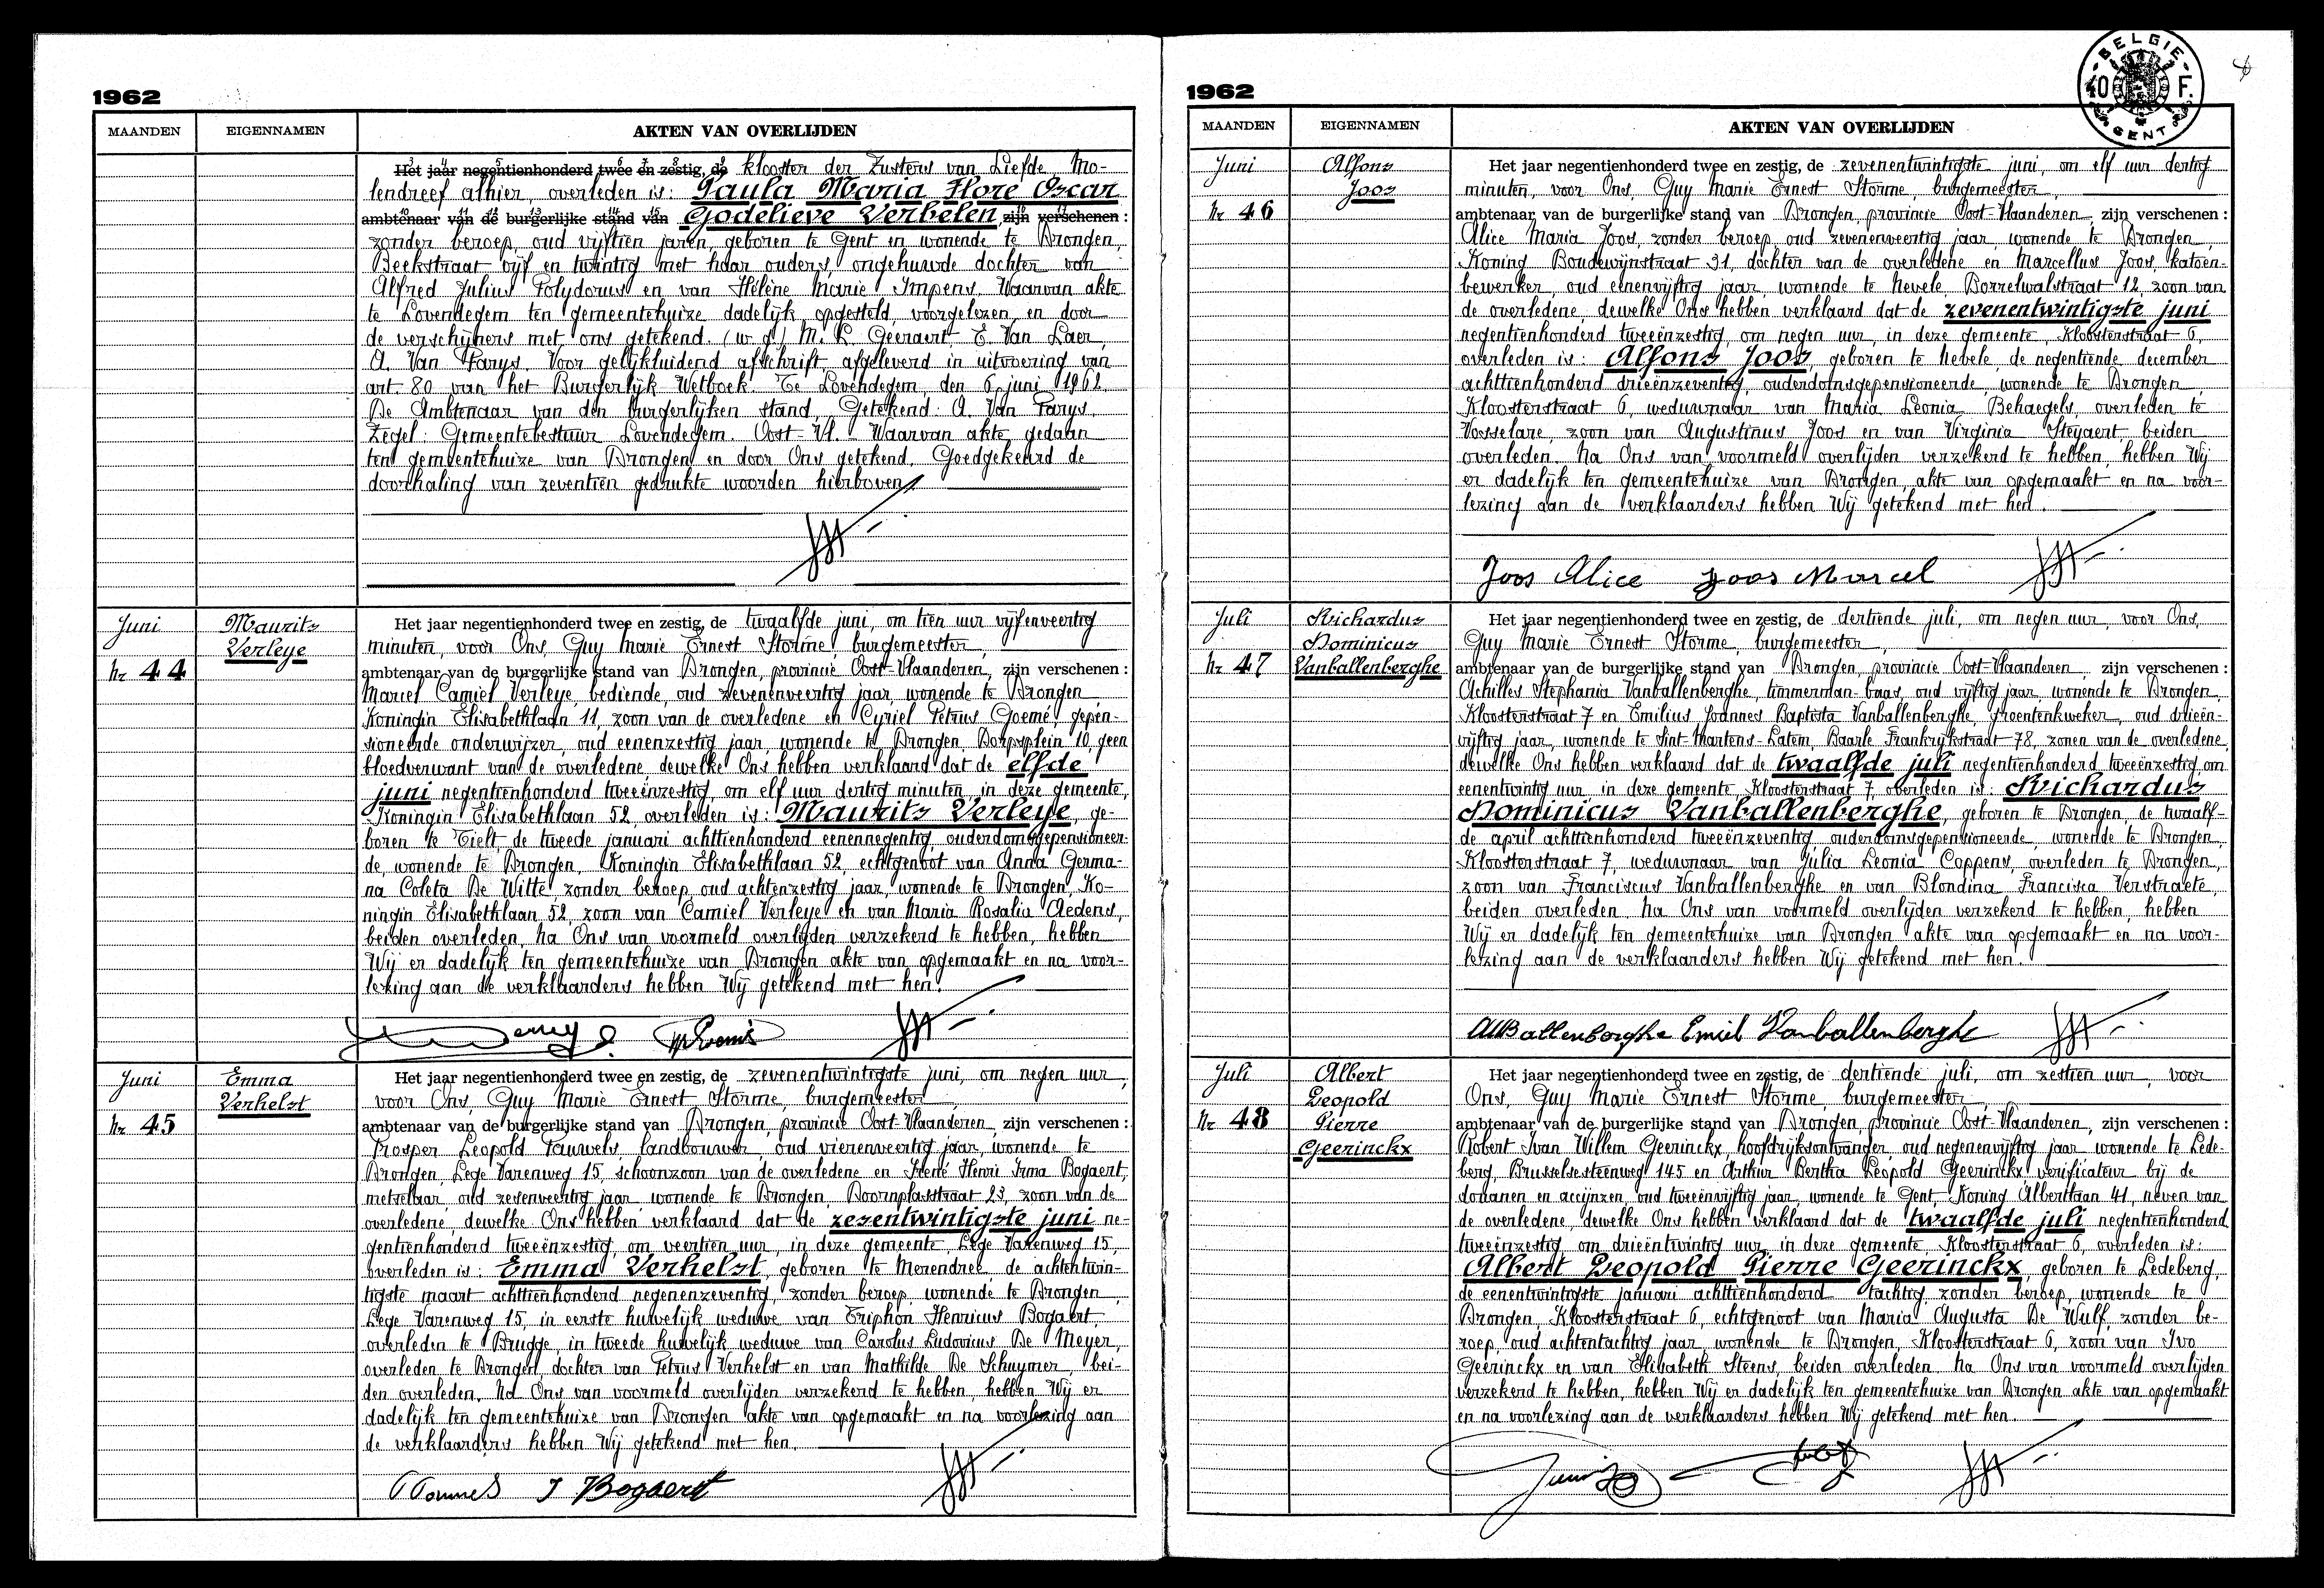 1962
MAANDEN
EIGENNAMEN
AKTEN VAN OVERLIJDEN
Het jaar negentienhonderd twee en zestig, de klooster der Zusters van Liefde Mo-
lendreef alhier, overleden is: Paula Maria Flore Oscar
ambtenaar van de burgerlijke stand van Godelieve Verbelen, zijn verschenen:
zonder beroep, oud vijftien jaren, geboren te Gent en wonende te Drongen,
Beekstraat vijf en twintig met haar ouders, ongehuwde dochter van
Alfred Julius Polydorus en van Hélène Marie Impens. Waarvan akte
te Lovendegem ten gemeentehuize dadelijk opgesteld, voorgelezen en door
de verschijners met ons getekend. (w.g.) M. L. Geeraert. E. Van Laer
A. Van Parys. Voor gelijkluidend afschrift, afgeleverd in uitvoering van
art. 80 van het Burgerlijk Wetboek. Te Lovendegem, den 6 juni 1962.
De Ambtenaar van den burgerlijken stand, Getekend: A. Van Parys.
Zegel: Gemeentebestuur Lovendegem. Oost-Vl. - Waarvan akte, gedaan
ten gemeentehuize van Drongen en door Ons getekend. Goedgekeurd de
doorhaling van zeventien gedrukte woorden hierboven.
Juni
Nr 44
Maurits
Verleye
Het jaar negentienhonderd twee en zestig, de twaalfde juni, om tien uur vijfenveertig
minuten, voor Ons, Guy Marie Ernest Storme, burgemeester,
ambtenaar van de burgerlijke stand van Drongen, provincie Oost-Vlaanderen, zijn verschenen:
Marcel Camiel Verleye, bediende, oud zevenenveertig jaar, wonende te Drongen,
Koningin Elisabethlaan 11, zoon van de overledene en Cyriel Petrus Goemé, gepen-
sioneerde onderwijzer, oud eenenzestig jaar, wonende te Drongen, Dorpsplein 10, geen
bloedverwant van de overledene, dewelke Ons hebben verklaard dat de elfde
juni negentienhonderd tweeënzestig, om elf uur dertig minuten, in deze gemeente,
Koningin Elisabethlaan 52, overleden is: Maurits Verleye, ge-
boren te Tielt, de tweede januari achttienhonderd eenennegentig, ouderdomsgepensioneer-
de, wonende te Drongen, Koningin Elisabethlaan 52, echtgenoot van Anna Germa-
na Coleta De Witte, zonder beroep, oud achtenzestig jaar, wonende te Drongen, Ko-
ningin Elisabethlaan 52, zoon van Camiel Verleye en van Maria Rosalia Aedens,
beiden overleden. Na Ons van voormeld overlijden verzekerd te hebben, hebben
Wij er dadelijk ten gemeentehuize van Drongen akte van opgemaakt en na voor-
lezing aan de verklaarders hebben Wij getekend met hen.
Juni
Nr 45
Emma
Verhelst
Het jaar negentienhonderd twee en zestig, de zevenentwintigste juni, om negen uur,
voor Ons, Guy Marie Ernest Storme, burgemeester
ambtenaar van de burgerlijke stand van Drongen, provincie Oost-Vlaanderen, zijn verschenen:
Prosper Leopold Pauwels, landbouwer, oud vierenveertig jaar, wonende te
Drongen, Lege Varenweg 15, schoonzoon van de overledene en Irené Henri Irma Bogaert,
metselaar, oud zevenveertig jaar, wonende te Drongen, Doornplasstraat 23, zoon van de
overledene, dewelke Ons hebben verklaard dat de zesentwintigste juni ne-
gentienhonderd tweeënzestig, om veertien uur, in deze gemeente, Lege Varenweg 15,
overleden is: Emma Verhelst, geboren te Merendree, de achtentwin-
tigste maart achttienhonderd negenenzeventig, zonder beroep, wonende te Drongen
Lege Varenweg 15, in eerste huwelijk weduwe van Triphon Henricus Bogaert,
overleden te Brugge, in tweede huwelijk weduwe van Carolus Ludovicus De Meyer,
overleden te Drongen, dochter van Petrus Verhelst en van Mathilde De Schuymer, bei-
den overleden. Na Ons van voormeld overlijden verzekerd te hebben, hebben Wij er
dadelijk ten gemeentehuize van Drongen akte van opgemaakt en na voorlezing aan
de verklaarders hebben Wij getekend met hen.
J Bogaert
1962
BELGIE
40 F.
GENT
MAANDEN
EIGENNAMEN
AKTEN VAN OVERLIJDEN
Juni
Nr 46
Alfons
Joos
Het jaar negentienhonderd twee en zestig, de zevenentwintigste juni, om elf uur dertig
minuten, voor Ons, Guy Marie Ernest Storme, burgemeester,
ambtenaar van de burgerlijke stand van Drongen, provincie Oost-Vlaanderen, zijn verschenen:
Alice Maria Joos, zonder beroep, oud zevenenveertig jaar, wonende te Drongen,
Koning Boudewijnstraat 31, dochter van de overledene en Marcellus Joos, katoen-
bewerker, oud eenenvijftig jaar, wonende te Nevele, Borrelwalstraat 12, zoon van
de overledene, dewelke Ons hebben verklaard dat de zevenentwintigste juni
negentienhonderd tweeënzestig, om negen uur, in deze gemeente, Kloosterstraat 6,
overleden is: Alfons Joos, geboren te Nevele, de negentiende december
achttienhonderd drieënzeventig, ouderdomsgepensioneerde, wonende te Drongen
Kloosterstraat 6, weduwnaar van Maria Leonia Behaegels, overleden te
Vosselare, zoon van Augustinus Joos en van Virginia Steyaert, beiden
overleden. Na Ons van voormeld overlijden verzekerd te hebben, hebben Wij
er dadelijk ten gemeentehuize van Drongen, akte van opgemaakt en na voor-
lezing aan de verklaarders hebben Wij getekend met hen.
Joos Alice Joos Marcel
Juli
Nr 47
Richardus
Dominicus
Vanballenberghe
Het jaar negentienhonderd twee en zestig, de dertiende juli, om negen uur, voor Ons,
Guy Marie Ernest Storme, burgemeester,
ambtenaar van de burgerlijke stand van Drongen, provincie Oost-Vlaanderen, zijn verschenen:
Achilles Stephania Vanballenberghe, timmerman-baas, oud vijftig jaar, wonende te Drongen,
Kloosterstraat 7 en Emilius Joannes Baptista Vanballenberghe, groentenkweker, oud drieën-
vijftig jaar, wonende te Sint-Martens-Latem, Baarle Frankrijkstraat 78, zonen van de overledene,
dewelke Ons hebben verklaard dat de twaalfde juli negentienhonderd tweeënzestig, om
eenentwintig uur, in deze gemeente, Kloosterstraat 7, overleden is: Richardus
Dominicus Vanballenberghe, geboren te Drongen, de twaalf-
de april achttienhonderd tweeënzeventig, ouderdomsgepensioneerde, wonende te Drongen,
Kloosterstraat 7, weduwnaar van Julia Leonia Coppens, overleden te Drongen,
zoon van Franciscus Vanballenberghe en van Blondina Francisca Verstraete,
beiden overleden. Na Ons van voormeld overlijden verzekerd te hebben, hebben
Wij er dadelijk ten gemeentehuize van Drongen akte van opgemaakt en na voor-
lezing aan de verklaarders hebben Wij getekend met hen.
AVBallenberghe Emiel Vanballenberghe
Juli
Nr 48
Albert
Leopold
Pierre
Geerinckx
Het jaar negentienhonderd twee en zestig, de dertiende juli, om zestien uur, voor
Ons, Guy Marie Ernest Storme, burgemeester,
ambtenaar van de burgerlijke stand van Drongen, provincie Oost-Vlaanderen, zijn verschenen:
Robert Ivan Willem Geerinckx, hoofdrijksontvanger, oud negenenvijftig jaar wonende te Lede-
berg, Brusselsesteenweg 145 en Arthur Bertha Leopold Geerinckx, verificateur bij de
douanen en accijnzen, oud tweeënvijftig jaar, wonende te Gent, Koning Albertlaan 41, neven van
de overledene, dewelke Ons hebben verklaard dat de twaalfde juli negentienhonderd
tweeënzestig, om drieëntwintig uur, in deze gemeente, Kloosterstraat 6, overleden is:
Albert Leopold Pierre Geerinckx, geboren te Ledeberg,
de eenentwintigste januari achttienhonderd tachtig, zonder beroep, wonende te
Drongen, Kloosterstraat 6, echtgenoot van Maria Augusta De Wulf, zonder be-
roep, oud achtentachtig jaar, wonende te Drongen, Kloosterstraat 6, zoon van Ivo
Geerinckx en van Elisabeth Steens, beiden overleden. Na Ons van voormeld overlijden
verzekerd te hebben, hebben Wij er dadelijk ten gemeentehuize van Drongen akte van opgemaakt
en na voorlezing aan de verklaarders hebben Wij getekend met hen.